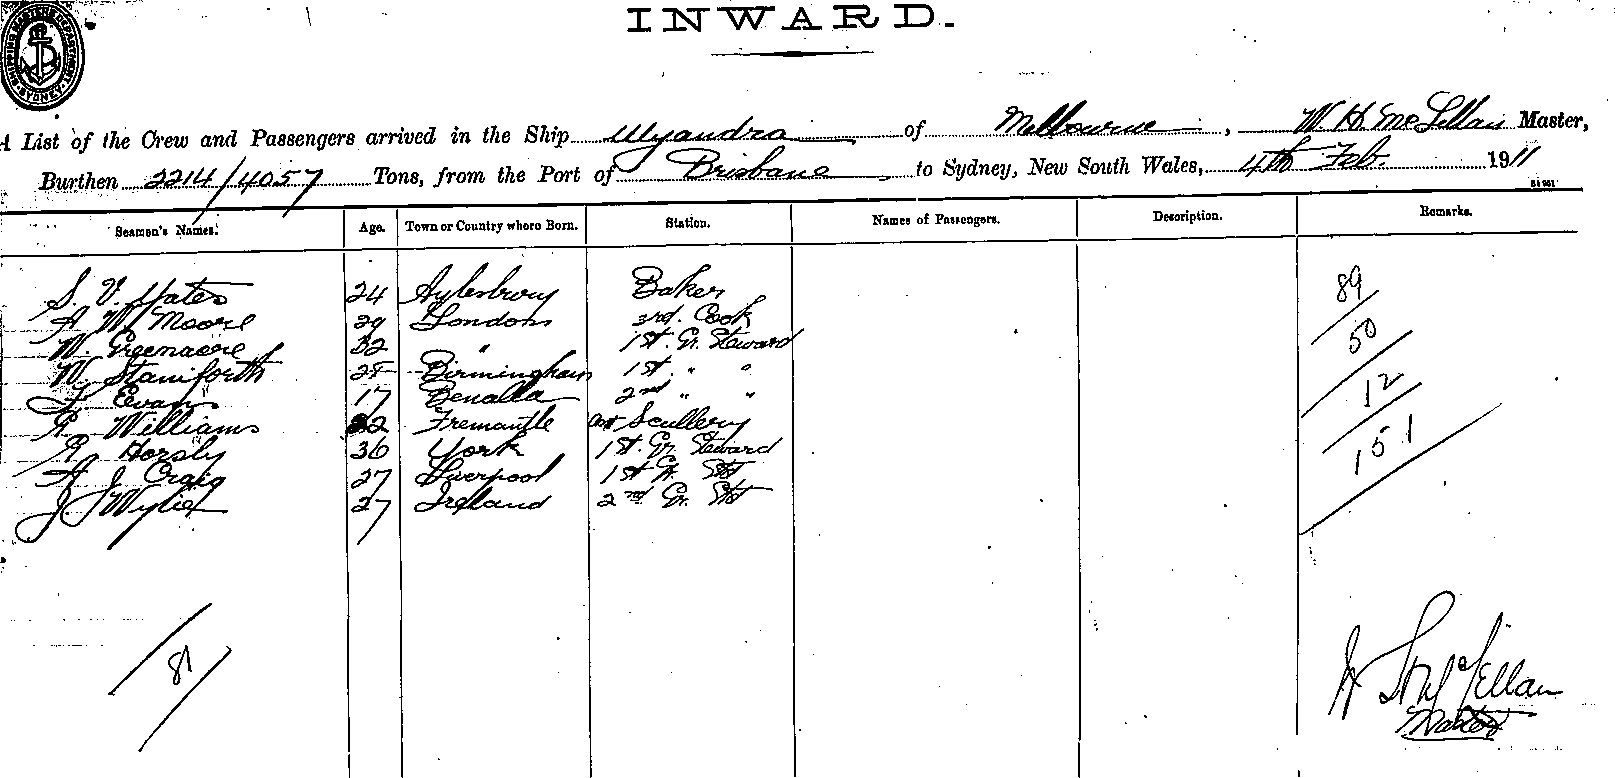 INWARD.
SHIPPING MASTERS DEPARTMENT SYDNEY
A List of the Crew and Passengers arrived in the Ship Wyandra of Melbourne, W. H. McLellan Master,
Burthen 2214/4057 Tons, from the Port of Brisbane to Sydney, New South Wales, 4th Feb. 1911
Seamen's Names. Age. Town or Country where Born. Station. Names of Passengers. Description. Remarks.
S. V. Yates 24 Aylesbury Baker 89
A W Moore 29 London 3rd. Cook 50
W. Greenacre 32 " 1st. Gr. Steward
W Staniforth 25 Birmingham 1st " " 12
Evans 17 Benalla 2nd " "
R. Williams 22 Fremantle Scullery 151
R Horsly 36 York 1st. Gr. Steward
A J Craig 27 Liverpool 1st
J. Wylie 27 Ireland 2nd Gr. Std
81
McLellan
Master